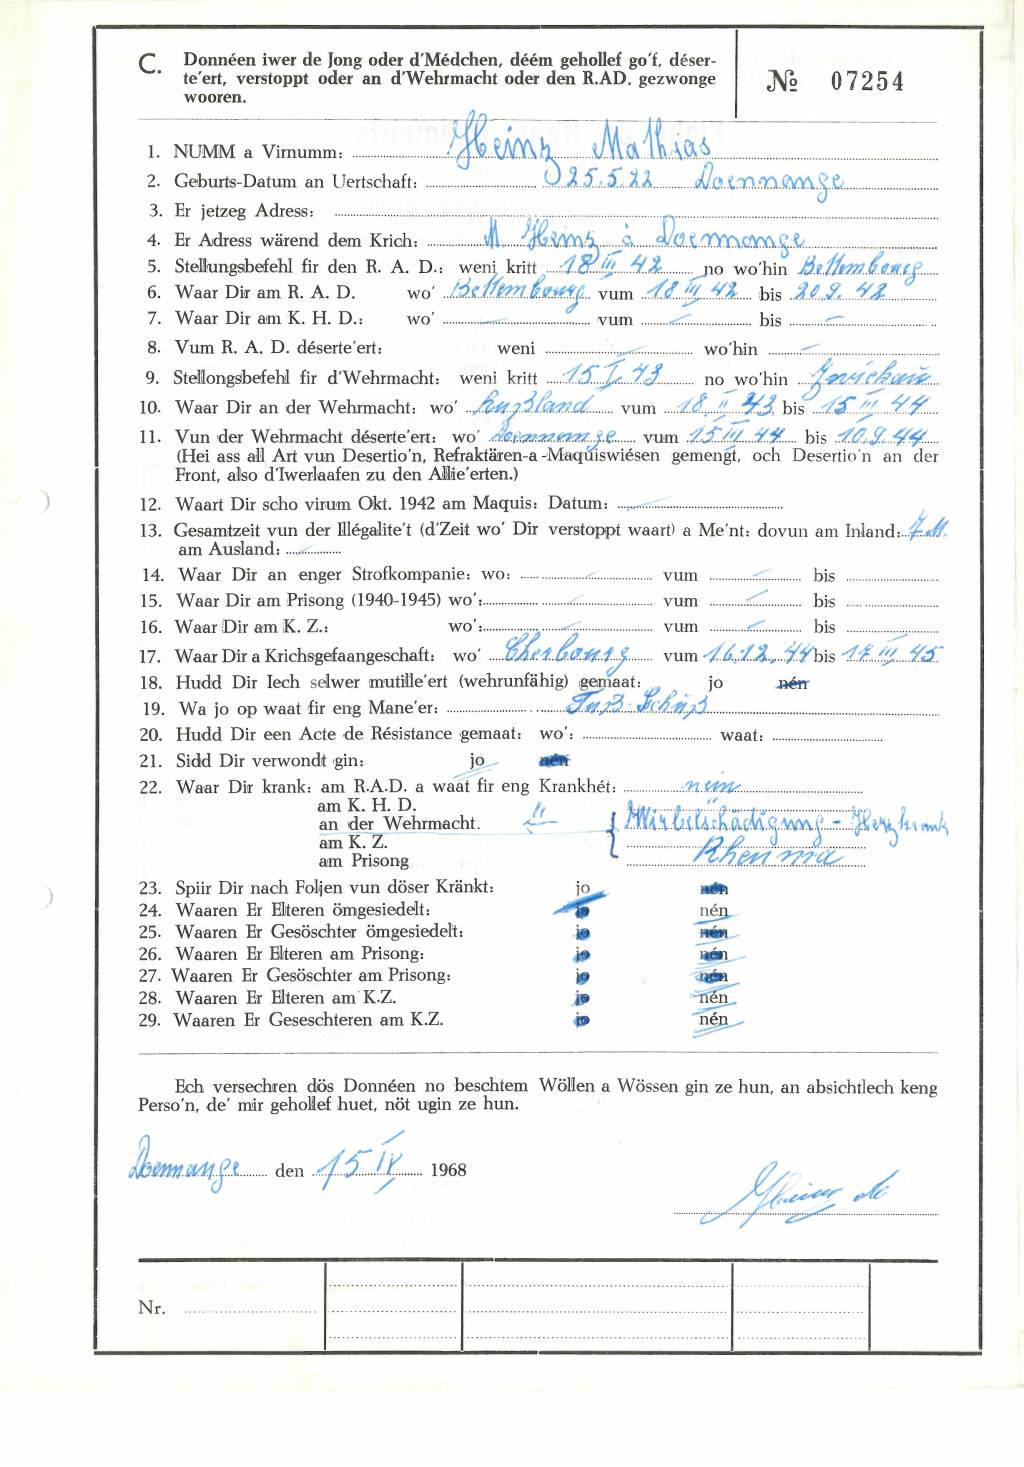 C. Donnéen iwer de Jong oder d'Médchen, déém gehollef go'f, déser-
te'ert, verstoppt oder an d'Wehrmacht oder den R.AD. gezwonge
wooren.
№ 07254
1. NUMM a Virnumm: Heinz Mathias
2. Geburts-Datum an Uertschaft: 25.5.22 Doennange
3. Er jetzeg Adress:
4. Er Adress wärend dem Krich: M Heinz à Doennange
5. Stellungsbefehl fir den R. A. D.: weni kritt 18 III 42 no wo'hin Bettembourg
6. Waar Dir am R. A. D. wo' Bettembourg vum 18 III 42 bis 20 9. 42
7. Waar Dir am K. H. D.: wo' — vum — bis —
8. Vum R. A. D. déserte'ert: weni — wo'hin —
9. Stellongsbefehl fir d'Wehrmacht: weni kritt 15 I 43 no wo'hin Zwickau
10. Waar Dir an der Wehrmacht: wo' Rußland vum 18. II 43 bis 15 III 44
11. Vun der Wehrmacht déserte'ert: wo' Doennange vum 15 III 44 bis 10.9.44
(Hei ass all Art vun Desertio'n, Refraktären-a-Maquiswiésen gemengt, och Desertio'n an der
Front, also d'Iwerlaafen zu den Allie'erten.)
12. Waart Dir scho virum Okt. 1942 am Maquis: Datum: —
13. Gesamtzeit vun der Illégalite't (d'Zeit wo' Dir verstoppt waart) a Me'nt: dovun am Inland: 7 M.
am Ausland: —
14. Waar Dir an enger Strofkompanie: wo: — vum — bis
15. Waar Dir am Prisong (1940-1945) wo': — vum — bis
16. Waar Dir am K. Z.: wo': — vum — bis
17. Waar Dir a Krichsgefaangeschaft: wo' Cherbourg vum 16.12.44 bis 17 III 45
18. Hudd Dir Iech selwer mutille'ert (wehrunfähig) gemaat: jo nén
19. Wa jo op waat fir eng Mane'er: Fuß-Schuß
20. Hudd Dir een Acte de Résistance gemaat: wo': waat:
21. Sidd Dir verwondt gin: jo nén
22. Waar Dir krank: am R.A.D. a waat fir eng Krankhét: nein
am K. H. D. "
an der Wehrmacht. Wirbelschädigung - Herzkrank
am K. Z.
am Prisong Rheuma
23. Spiir Dir nach Foljen vun döser Kränkt: jo nén
24. Waaren Er Elteren ömgesiedelt: jo nén
25. Waaren Er Gesöschter ömgesiedelt: jo nén
26. Waaren Er Elteren am Prisong: jo nén
27. Waaren Er Gesöschter am Prisong: jo nén
28. Waaren Er Elteren am K.Z. jo nén
29. Waaren Er Geseschteren am K.Z. jo nén
Ech versechren dös Donnéen no beschtem Wöllen a Wössen gin ze hun, an absichtlech keng
Perso'n, de' mir gehollef huet, nöt ugin ze hun.
Doennange den 15 IV 1968
Nr.